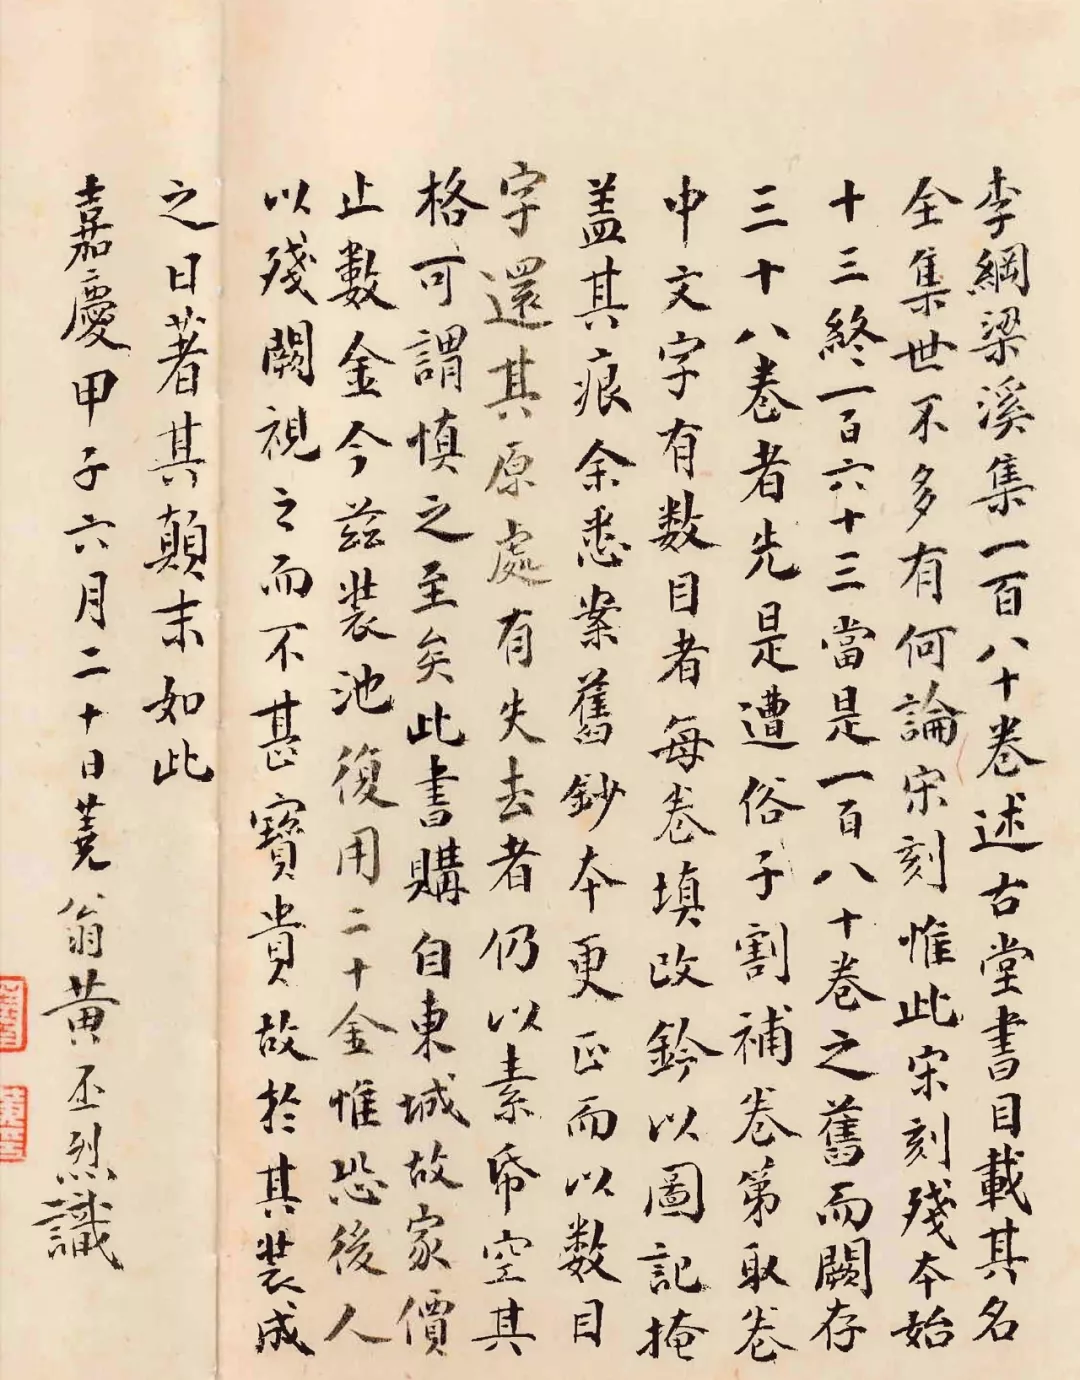 李綱梁溪集一百八十卷述古堂書目載其名
全集世不多有何論宋刻惟此宋刻殘本始
十三終一百六十三當是一百八十卷之舊而闕存
三十八卷者先是遭俗子割補卷第取卷
中文字有数目者每卷填改鈐以圖記掩
盖其痕余悉案舊鈔本更正而以数目
字還其原處有失去者仍以素帋空其
格可謂慎之至矣此書購自東城故家價
止數金今兹装池復用二十金惟恐後人
以殘闕視之而不甚寶貴故於其装成
之日著其顛末如此
嘉慶甲子六月二十日蕘翁黄丕烈識